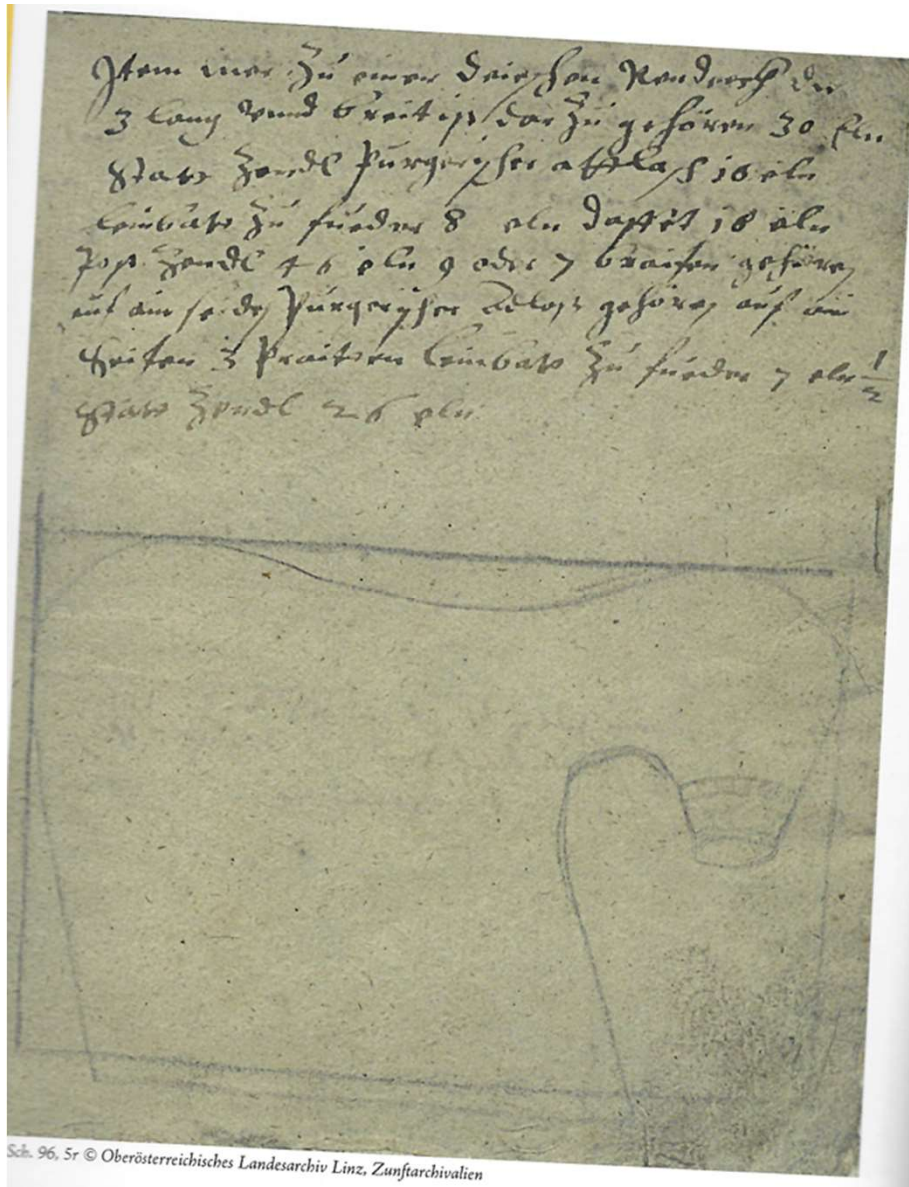 Item mer zu einer Deischen Renndeckh die
3 lang vnnd breit ist dar zu gehören 30 Eln
Stars Zendl Purgerischer attlaß 16 eln
leinbat zu fueder 8 eln Daffet 18 eln
Zendl 46 eln 9 oder 7 braiten gehören
auf ain seiden Purgerischer Adlaß gehören auf ain
Seiten 3 Praitten leinbat zu fueder 7 eln 1/2
Stars Zendl 26 eln
Sch. 96, 5r © Oberösterreichisches Landesarchiv Linz, Zunftarchivalien